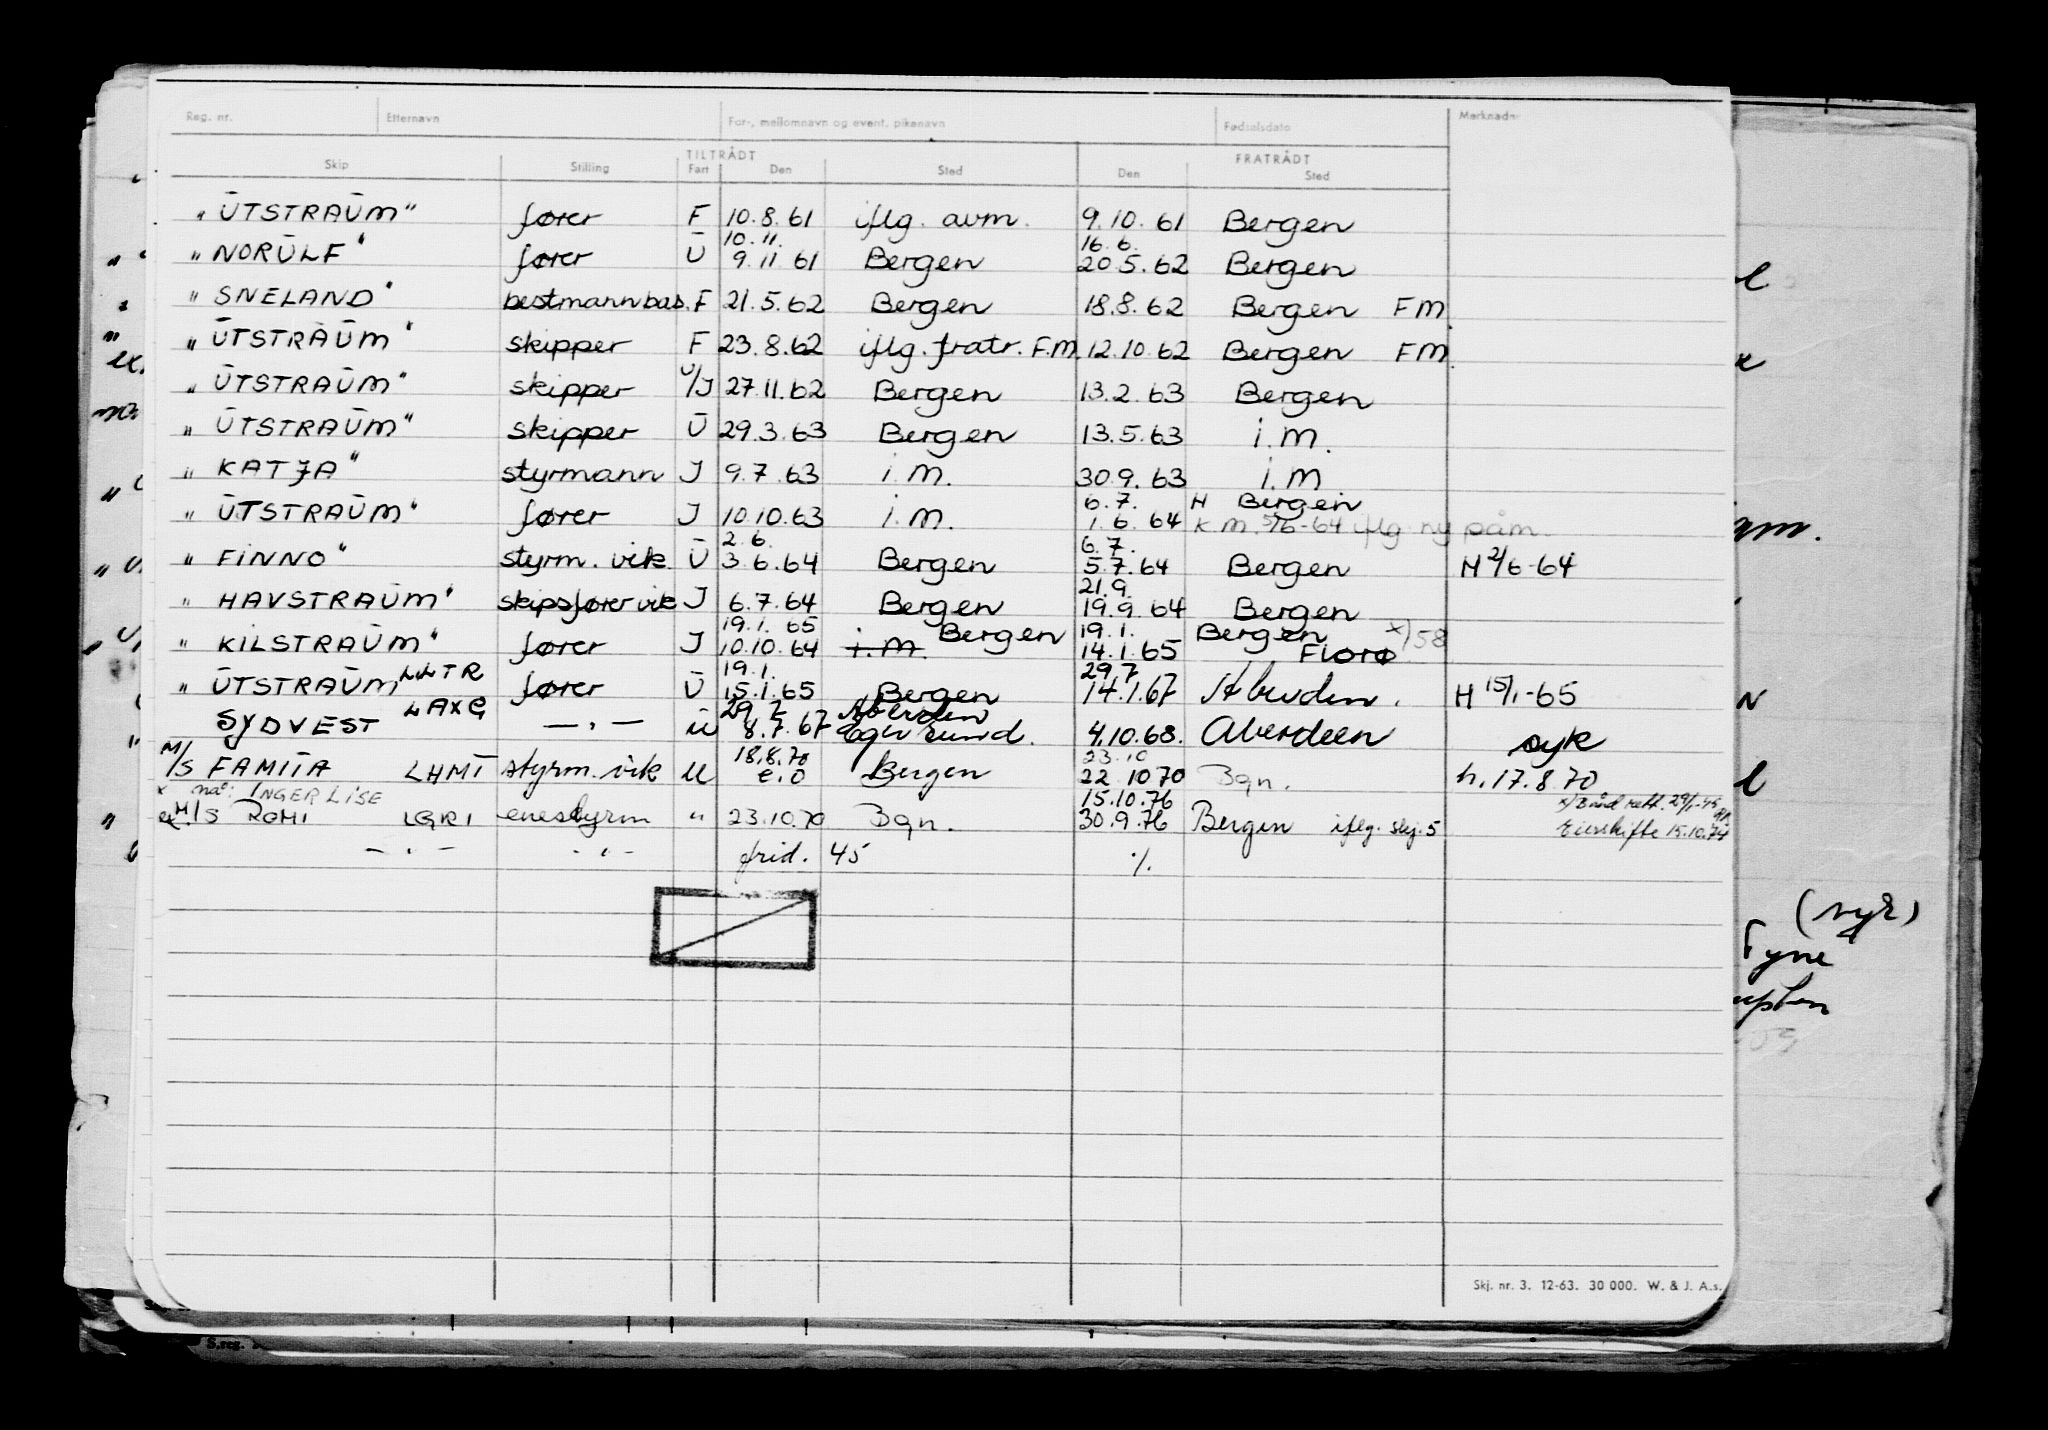 Reg. nr. Etternavn For-, mellomnavn og event. pikenavn Fødselsdato Merknader
TILTRÅDT FRATRÅDT
Skip Stilling Fart Den Sted Den Sted
"UTSTRAUM" fører F 10.8.61 iflg. avm. 9.10.61 Bergen
10.11. 16.6.
"NORULF" fører U 9.11.61 Bergen 20.5.62 Bergen
"SNELAND" bestmannbas. F 21.5.62 Bergen 18.8.62 Bergen FM.
"UTSTRAUM" skipper F 23.8.62 iflg. fratr. F.M. 12.10.62 Bergen FM
"UTSTRAUM" skipper U/I 27.11.62 Bergen 13.2.63 Bergen
"UTSTRAUM" skipper U 29.3.63 Bergen 13.5.63 i.M.
"KATJA" styrmann I 9.7.63 i.M. 30.9.63 i.M
6.7. H Bergen
"UTSTRAUM" fører I 10.10.63 i.M. 1.6.64 K.M. 5/6-64 iflg. ny påm.
2.6. 6.7.
"FINNO" styrm. vik. U 3.6.64 Bergen 5.7.64 Bergen H 2/6-64
21.9.
"HAVSTRAUM" skipsfører vik I 6.7.64 Bergen 19.9.64 Bergen
19.1.65 Bergen 19.1. Bergen x)58
"KILSTRAUM" fører I 10.10.64 i.M. 14.1.65 Florø
19.1. 29.7
"UTSTRAUM LLTR fører U 15.1.65 Bergen 14.1.67 Aberdeen. H 15/1-65
29.7 Aberdeen
SYDVEST LAXG — " — U 8.7.67 Egersund. 4.10.68. Aberdeen syk
18.8.70 23.10
M/S FAMITA LHMT styrm. vik U e.o Bergen 22.10.70 Bgn. h. 17.8.70
x nå: INGER LISE 15.10.76
ex M/S ROMI LGRI enestyrm " 23.10.70 Bgn. 30.9.76 Bergen iflg. skj. 5 Eierskifte 15.10.74
— " — — " — frid. 45 ./.
(syk)
Tyne
Skj. nr. 3. 12-63. 30 000. W. & J. A.s.
S.reg.